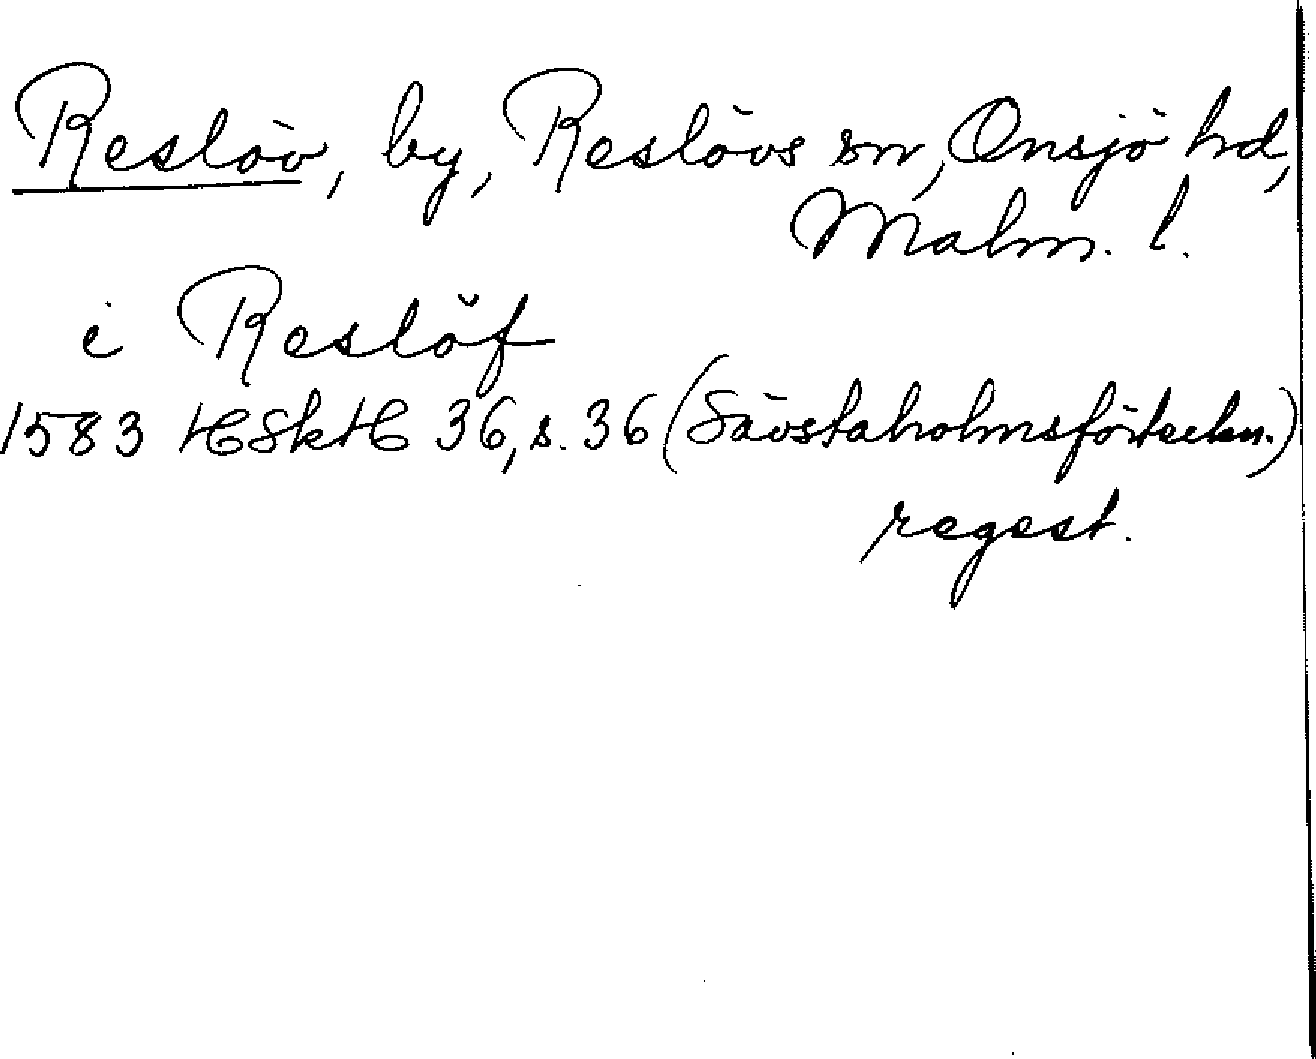 Reslöv, by, Reslövs sn, Onsjö hd,
Malm. l.
i Reslöf
1583 HSkH 36, s. 36 (Sävstaholmsförteckn.)
regest.